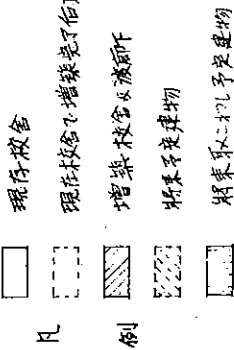 凡例
現存校舎
現在校舎デ増築完了後
増築校舎及渡廊下
将来予定建物
将来取こわし予定建物